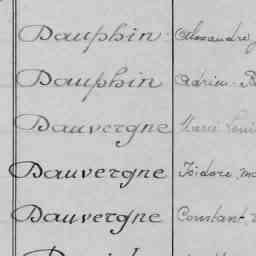 Dauphin Alexandre
Dauphin Adrien
Dauvergne Marie Louis
Dauvergne Isidore, ma
Dauvergne Constant,